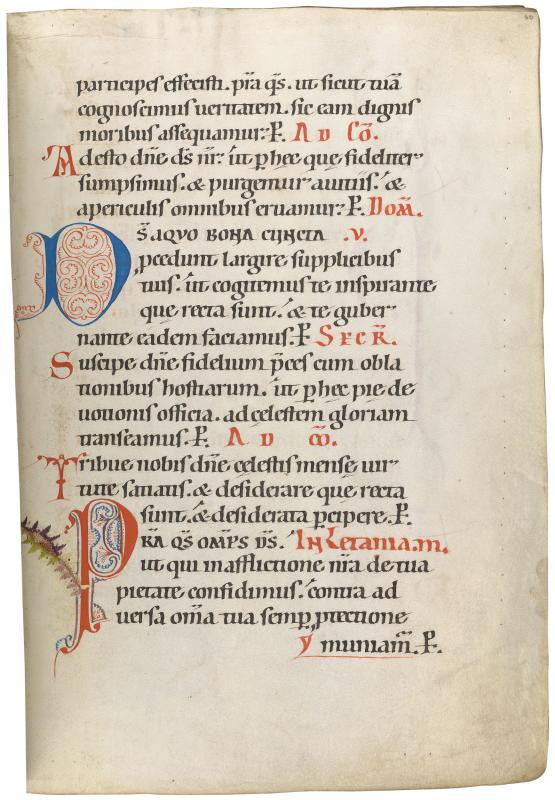 60
participes effecisti. p̄ra q̄s. ut sicut tuā
cognoscimus ueritatem. sic eam dignis
moribus assequamur. P. AD CŌ.
Adesto dn̄e ds̄ nr̄. ut p̄ hec que fideliter
sumpsimus. & purgemur auitiis. &
apericulis omnibus eruamur. P. DOM̄.
Ds̄ AQVO BONA CUNCTA .v.
p̄cedunt largire supplicibus
tuis. ut cogitemus te inspirante
que recta sunt. & te guber
nante eadem faciamus. P SECR̄.
Suscipe dn̄e fidelium p̄ces cum obla
tionibus hostiarum. ut p̄ hec pie de
uotionis officia. ad celestem gloriam
transeamus. P. AD CŌ.
Tribue nobis dn̄e celestis mense uir
tute satiatis. & desiderare que recta
sunt. & desiderata p̄cipere. P.
PR̄A QS̄ OMP̄S DS̄. IN Letania.m.
ut qui in afflictione nr̄a de tua
pietate confidimus. contra ad
uersa om̄a tua semp̄ p̄tectione
y muniam̄. P.